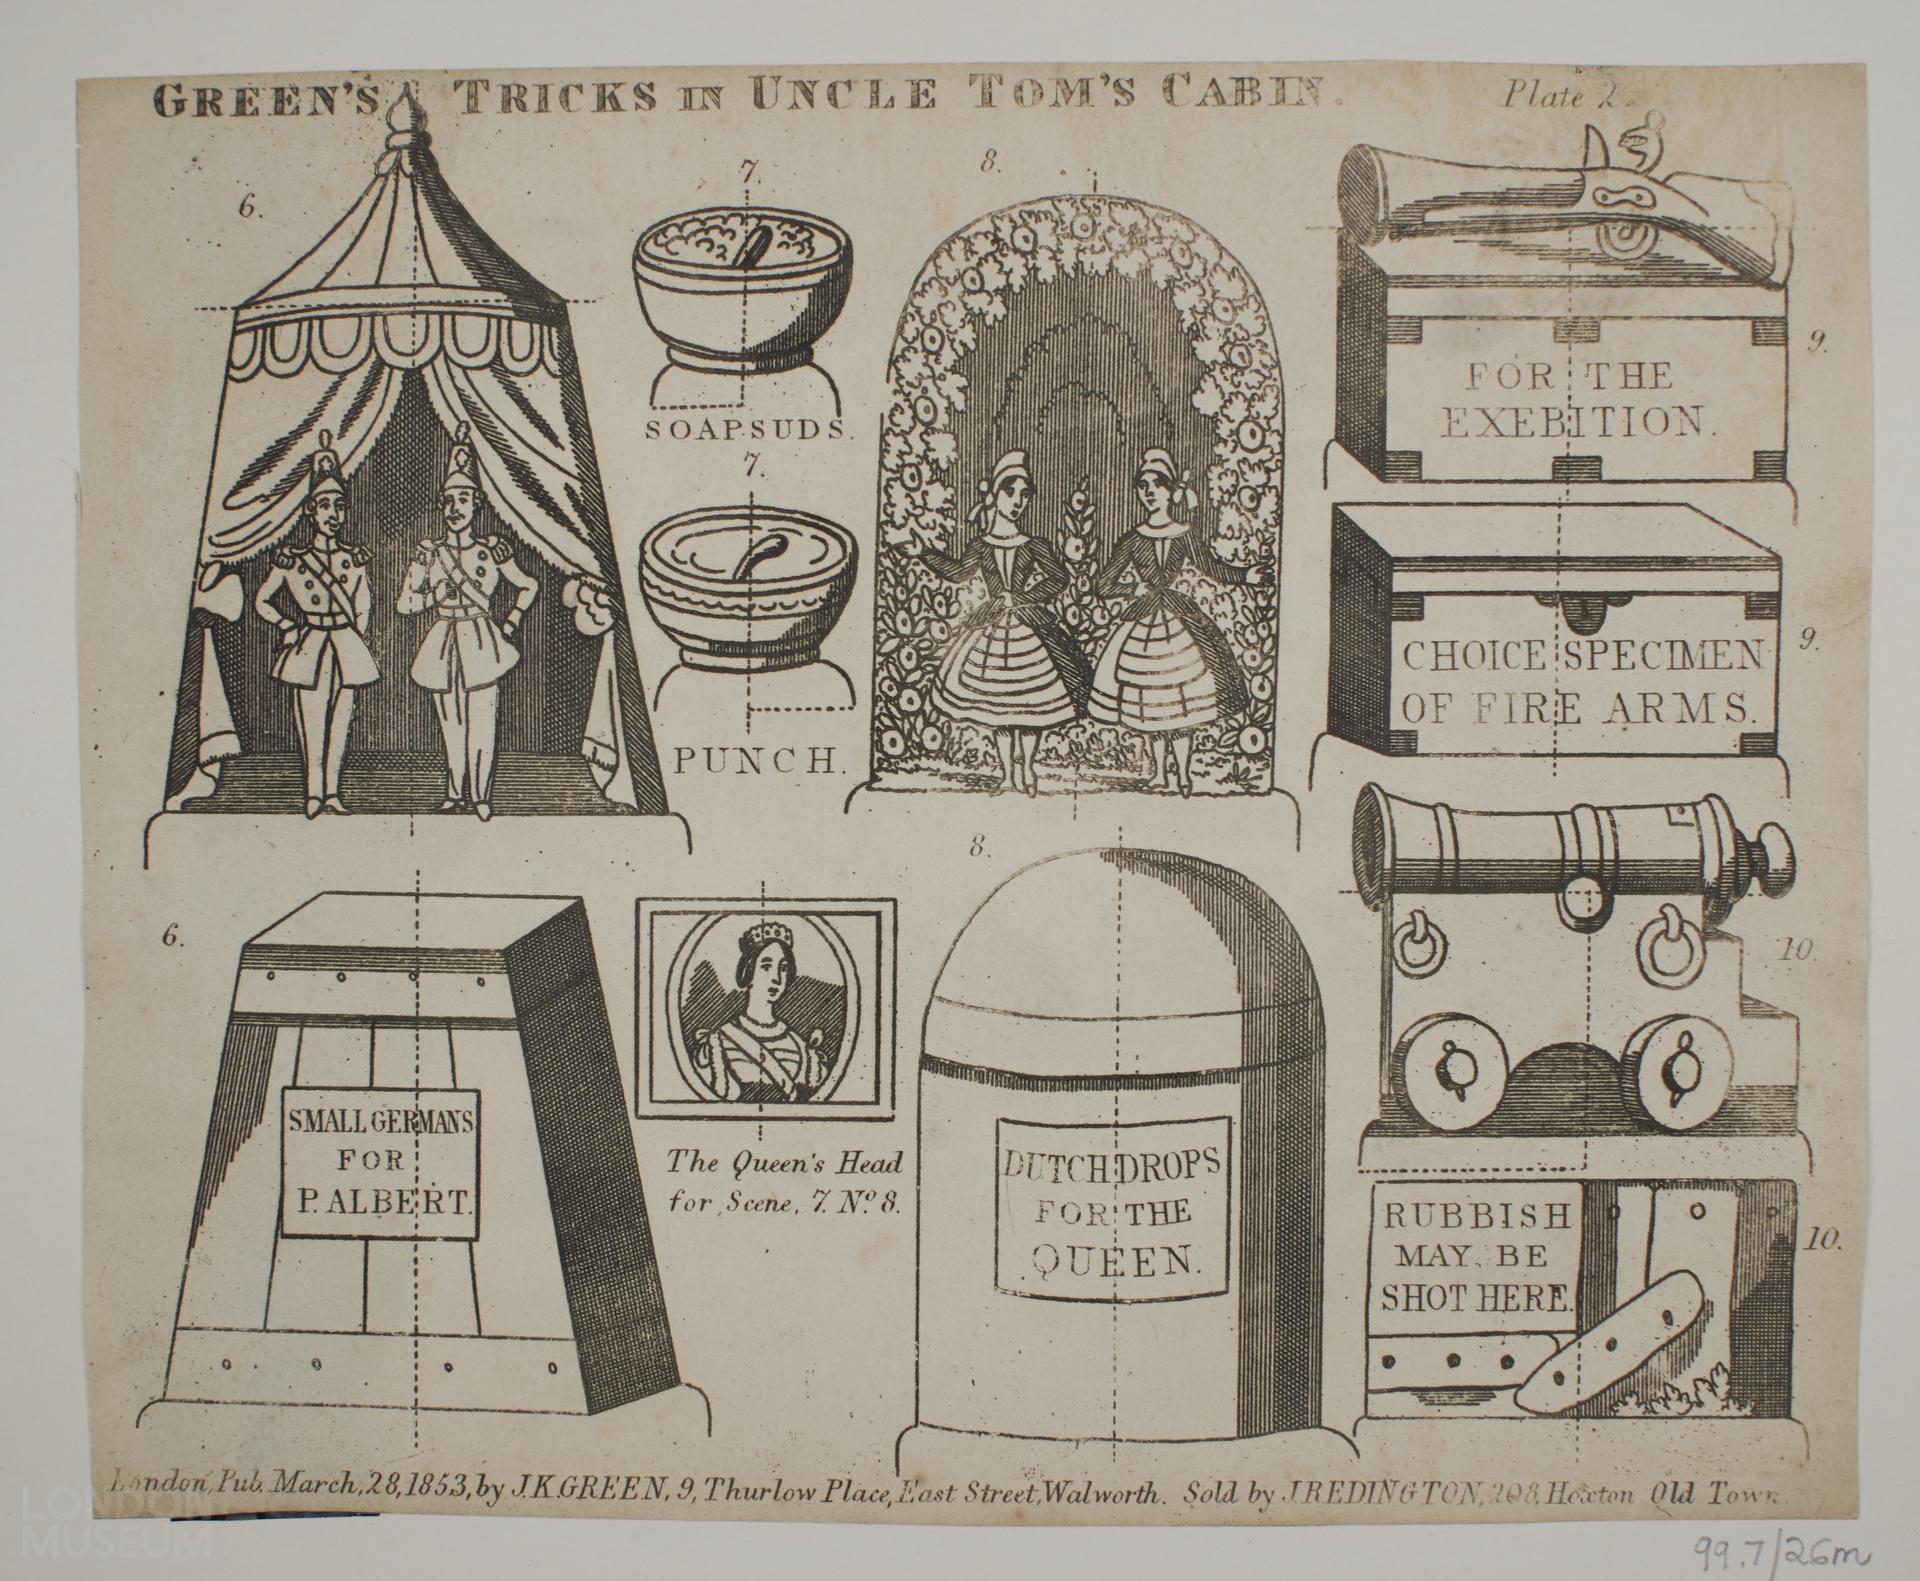 GREEN'S TRICKS IN UNCLE TOM'S CABIN.
Plate 2.
6.
7.
SOAPSUDS.
7.
PUNCH.
8.
9.
FOR THE
EXEBITION.
9.
CHOICE SPECIMEN
OF FIRE ARMS.
6.
SMALL GERMANS
FOR
P. ALBERT.
The Queen's Head
for Scene, 7. No. 8.
8.
DUTCH DROPS
FOR THE
QUEEN.
10.
10.
RUBBISH
MAY, BE
SHOT HERE.
London, Pub. March, 28, 1853, by J.K. GREEN, 9, Thurlow Place, East Street, Walworth. Sold by J. REDINGTON, 208, Hoxton Old Town.
LONDON
MUSEUM
99.7/26m